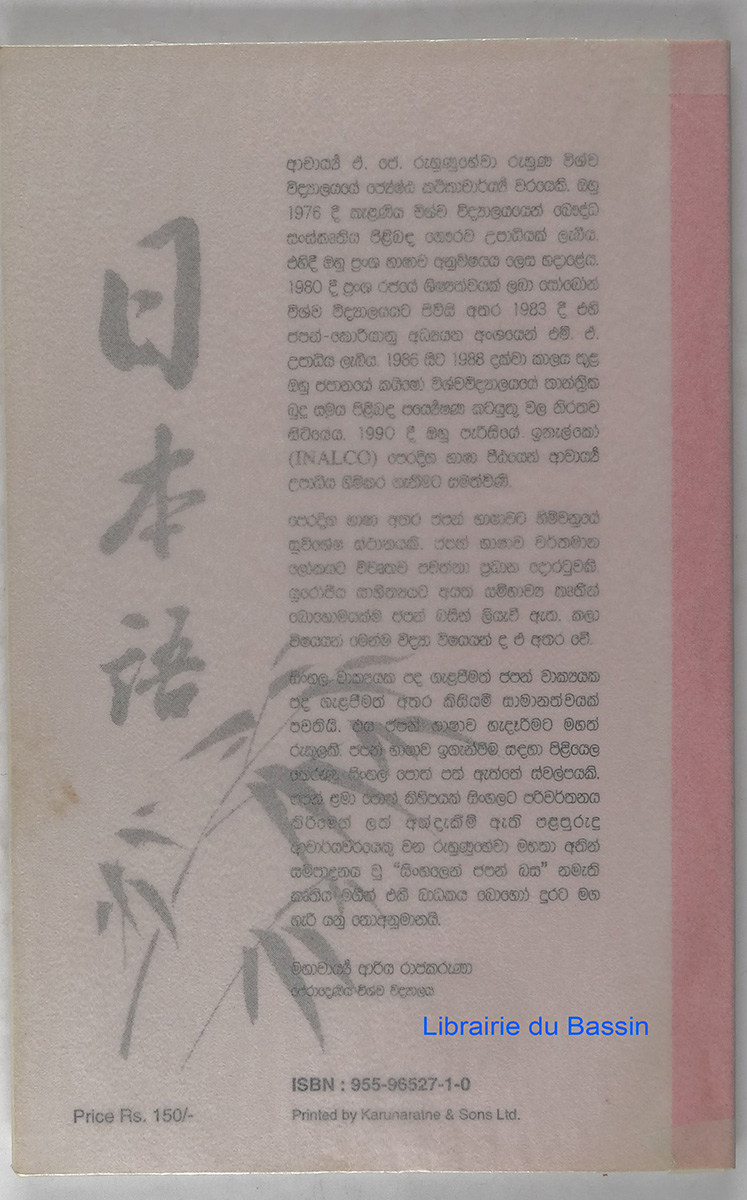 日本語
ආචාර්ය ඒ. ජේ. රුහුණුහේවා රුහුණ විශ්ව
විද්‍යාලයයේ ජ්‍යේෂ්ඨ කථිකාචාර්ය වරයෙකි. ඔහු
1976 දී කැළණිය විශ්ව විද්‍යාලයයෙන් බෞද්ධ
සංස්කෘතිය පිළිබඳ ගෞරව උපාධියක් ලැබීය.
එහිදී ඔහු ප්‍රංශ භාෂාව අනුවිෂයය ලෙස හදාළේය.
1980 දී ප්‍රංශ රජයේ ශිෂ්‍යත්වයක් ලබා සෝබෝන්
විශ්ව විද්‍යාලයයට පිවිසි අතර 1983 දී එහි
ජපන්-කොරියානු අධ්‍යයන අංශයෙන් එම්. ඒ.
උපාධිය ලැබීය. 1986 සිට 1988 දක්වා කාලය තුළ
ඔහු ජපානයේ කයිෂෝ විශ්වවිද්‍යාලයයේ තාන්ත්‍රික
බුදු සමය පිළිබඳ පර්යේෂණ කටයුතු වල නිරතව
සිටියේය. 1990 දී ඔහු පැරිසියේ ඉනැල්කෝ
(INALCO) පෙරදිග භාෂා පීඨයෙන් ආචාර්ය
උපාධිය හිමිකර ගැනීමට සමත්විණි.
පෙරදිග භාෂා අතර ජපන් භාෂාවට හිමිවනුයේ
සුවිශේෂ ස්ථානයකි. ජපන් භාෂාව වර්තමාන
ලෝකයට විවෘතව පවත්නා ප්‍රධාන දොරටුවකි.
යුරෝපීය සාහිත්‍යයට අයත් සම්භාව්‍ය කෘතීන්
බොහොමයක්ම ජපන් බසින් ලියැවී ඇත. කලා
විෂයයන් මෙන්ම විද්‍යා විෂයයන් ද ඒ අතර වේ.
සිංහල වාක්‍යයක පද ගැළපීමත් ජපන් වාක්‍යයක
පද ගැළපීමත් අතර කිසියම් සාමානත්වයක්
පවතියි. එය ජපන් භාෂාව හැදෑරීමට මහත්
රුකුලකි. ජපන් භාෂාව ඉගැන්වීම සඳහා පිළියෙල
කෙරුණු සිංහල පොත් පත් ඇත්තේ ස්වල්පයකි.
ජපන් ළමා පොත් කිහිපයක් සිංහලට පරිවර්තනය
කිරීමෙන් ලත් අත්දැකීම් ඇති පළපුරුදු
ආචාර්යවරයෙකු වන රුහුණුහේවා මහතා අතින්
සම්පාදනය වූ "සිංහලෙන් ජපන් බස" නමැති
කෘතිය මගින් එකී බාධකය බොහෝ දුරට මග
හැරී යනු නොඅනුමානයි.
මහාචාර්ය ආරිය රාජකරුණා
පේරාදෙණිය විශ්ව විද්‍යාලය
Librairie du Bassin
ISBN : 955-96527-1-0
Price Rs. 150/-
Printed by Karunaratne & Sons Ltd.